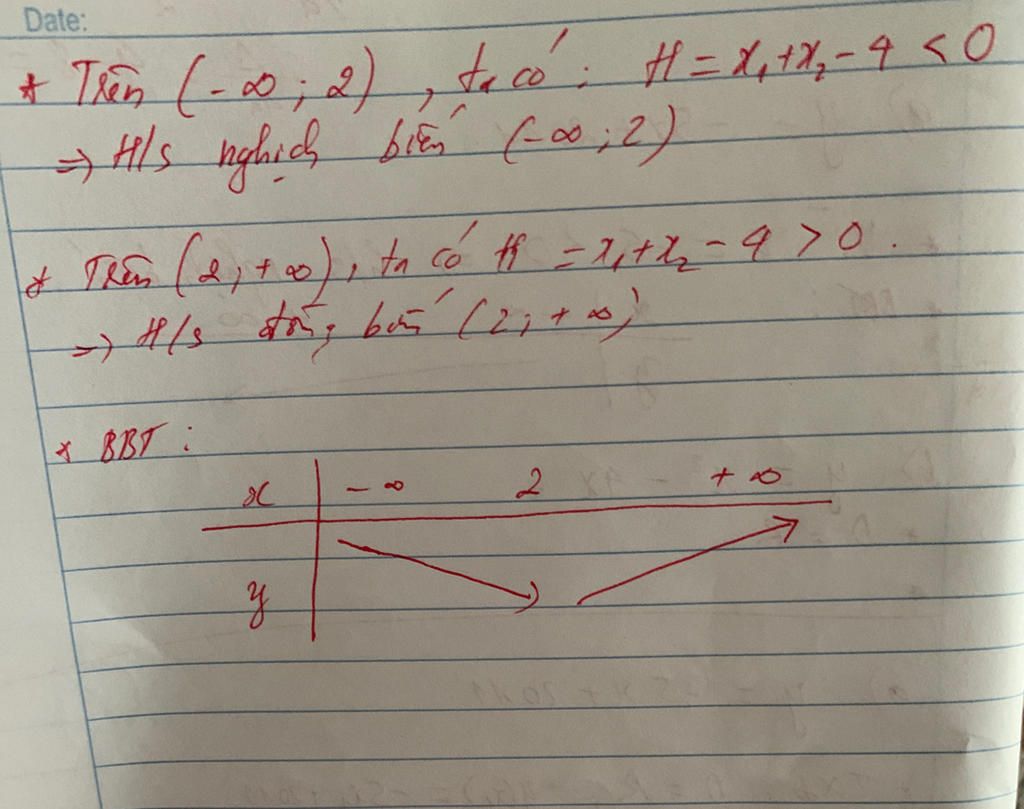 Date:
* Trên (-∞; 2), ta có: H = x₁+x₂-4 < 0
=> H/s nghịch biến (-∞; 2)
* Trên (2; +∞), ta có H = x₁+x₂-4 > 0.
=> H/s đồng biến (2; +∞)
* BBT:
x -∞ 2 +∞
y